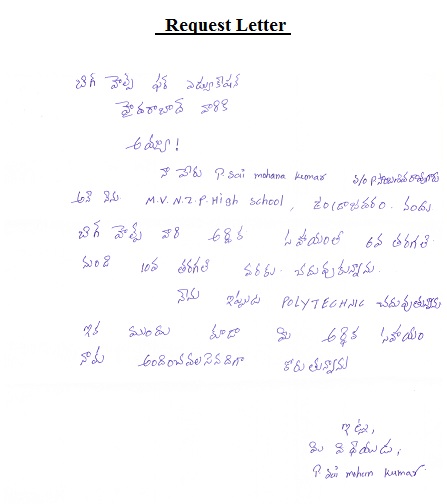 Request Letter
బిగ్ హెల్ప్ ఫర్ ఎడ్యుకేషన్
హైదరాబాద్ వారికి
అయ్యా!
నా పేరు P Sai mohana kumar S/O P
అనే నేను M.V.N.Z.P. High School, నందు
బిగ్ హెల్ప్ వారి ఆర్థిక సహాయంతో 6వ తరగతి
నుండి 10వ తరగతి వరకు చదువుకున్నాను.
నేను ఇప్పుడు POLYTECHNIC చదువుతున్నాను
ఇక ముందు కూడా మీ ఆర్థిక సహాయం
నాకు అందించవలసినదిగా కోరుతున్నాను
ఇట్లు,
మీ విధేయుడు,
P Sai mohan kumar.